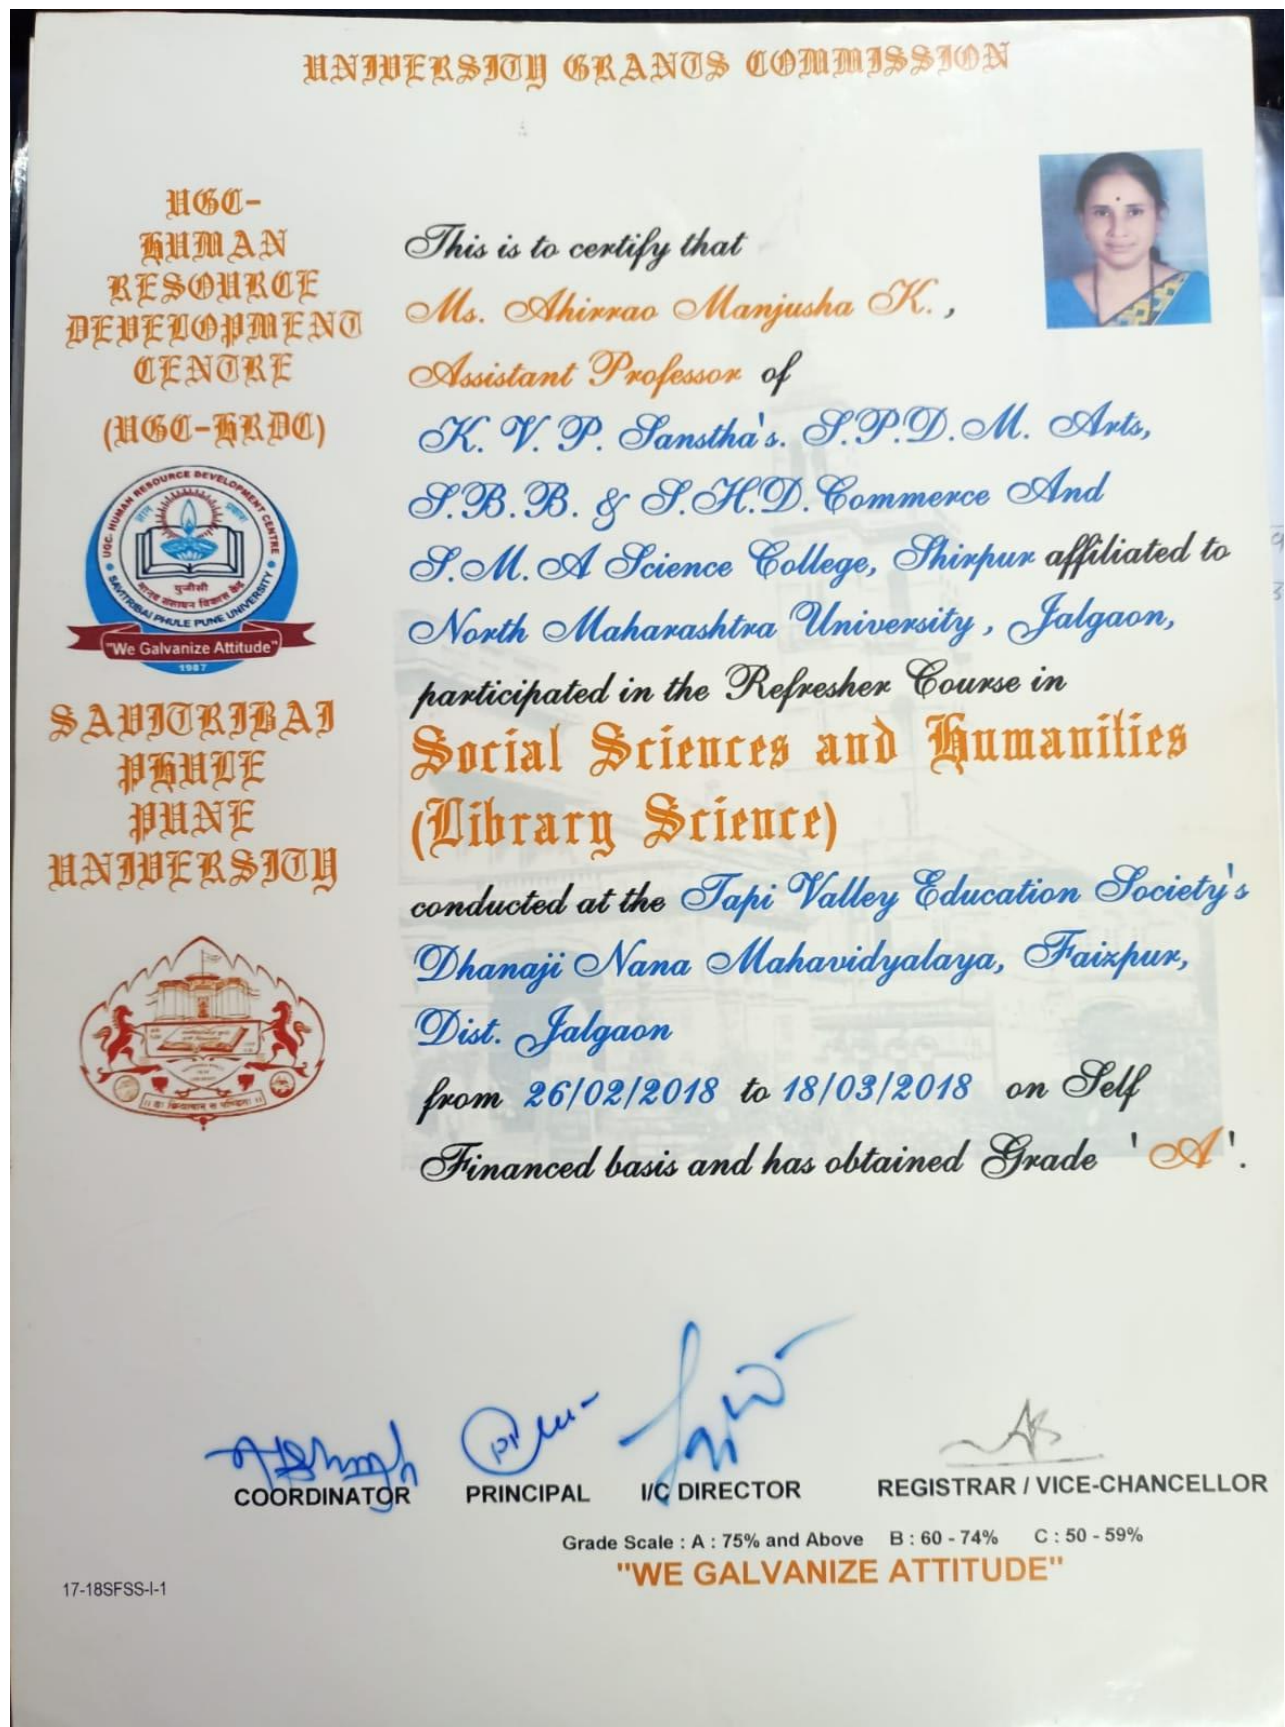 UNIVERSITY GRANTS COMMISSION
UGC-
HUMAN
RESOURCE
DEVELOPMENT
CENTRE
(UGC-HRDC)
UGC- HUMAN RESOURCE DEVELOPMENT CENTRE
SAVITRIBAI PHULE PUNE UNIVERSITY
ज्ञान
युजीसी
मानव संसाधन विकास केंद्र
"We Galvanize Attitude"
1987
SAVITRIBAI
PHULE
PUNE
UNIVERSITY
This is to certify that
Ms. Ahirrao Manjusha K. ,
Assistant Professor of
K. V. P. Sanstha's. S.P.D.M. Arts,
S.B.B. & S.H.D. Commerce And
S.M.A Science College, Shirpur affiliated to
North Maharashtra University , Jalgaon,
participated in the Refresher Course in
Social Sciences and Humanities
(Library Science)
conducted at the Tapi Valley Education Society's
Dhanaji Nana Mahavidyalaya, Faizpur,
Dist. Jalgaon
from 26/02/2018 to 18/03/2018 on Self
Financed basis and has obtained Grade ' A '.
COORDINATOR PRINCIPAL I/C DIRECTOR REGISTRAR / VICE-CHANCELLOR
Grade Scale : A : 75% and Above B : 60 - 74% C : 50 - 59%
"WE GALVANIZE ATTITUDE"
17-18SFSS-I-1